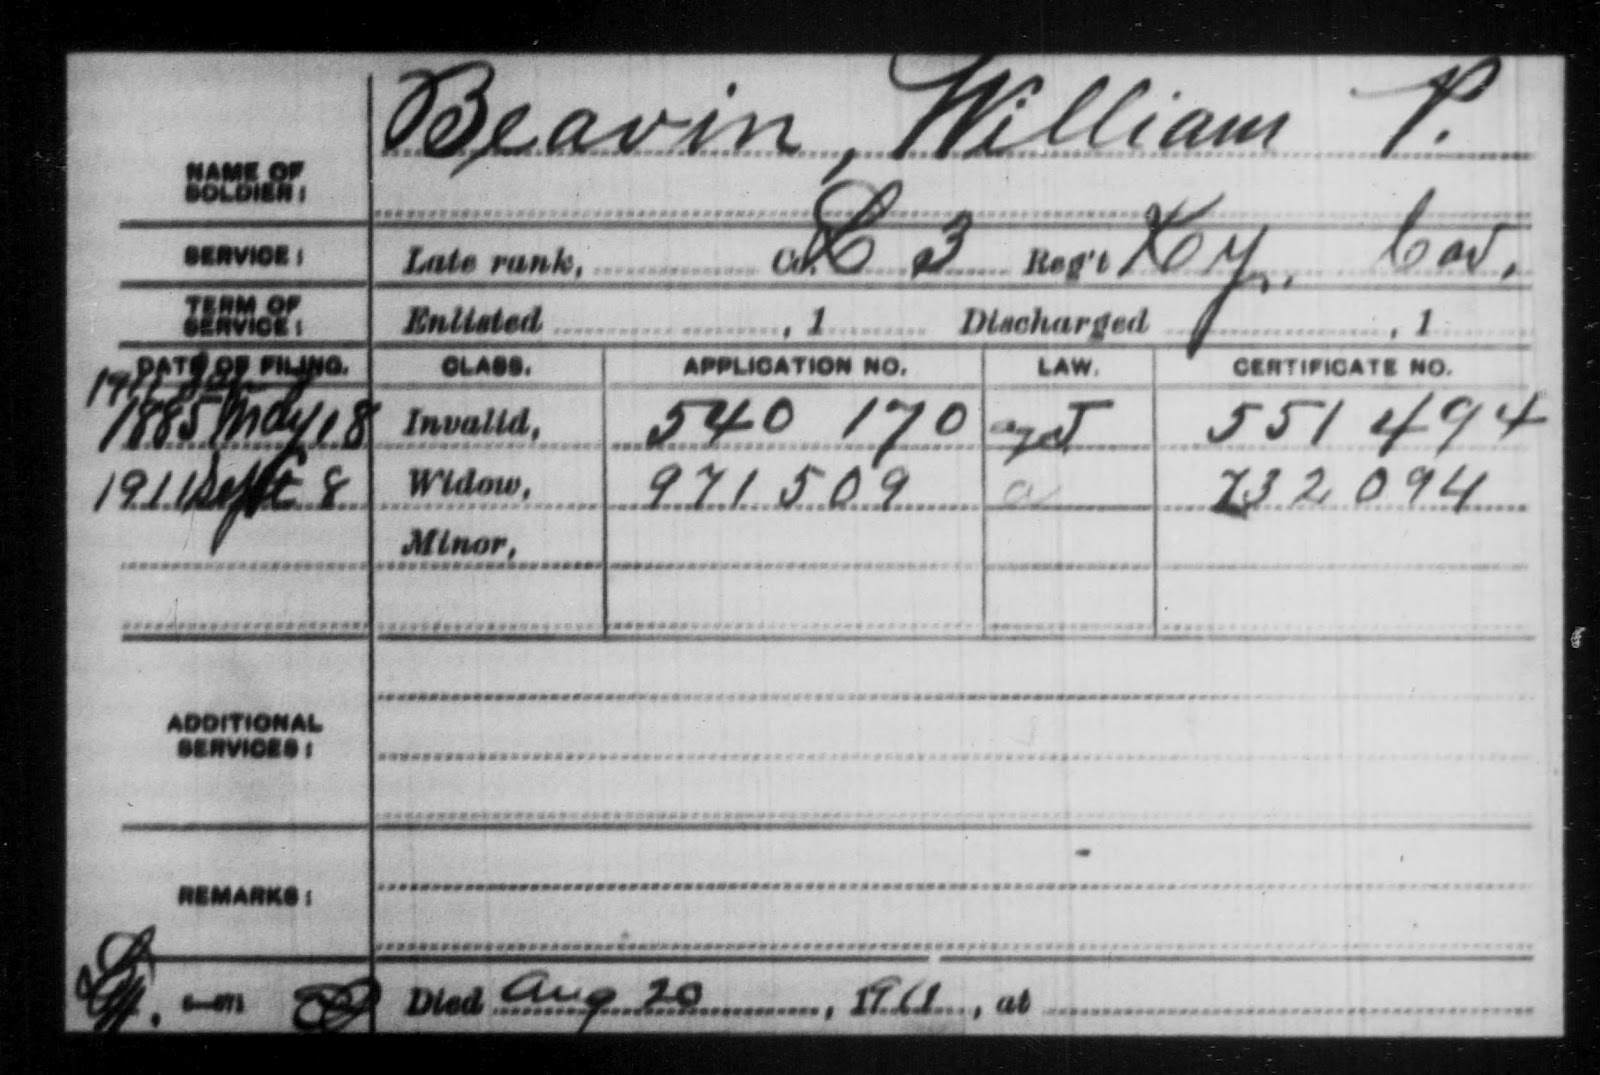 Beavin, William P.
NAME OF
SOLDIER:
SERVICE: Late rank, Co. C 3 Reg't Ky. Cav.
TERM OF
SERVICE: Enlisted , 1 Discharged , 1
DATE OF FILING. CLASS. APPLICATION NO. LAW. CERTIFICATE NO.
1885 May 18 Invalid, 540 170 551 494
1911 Sept 8 Widow, 971509 a 732094
Minor,
ADDITIONAL
SERVICES:
REMARKS:
Died Aug 20, 1911, at